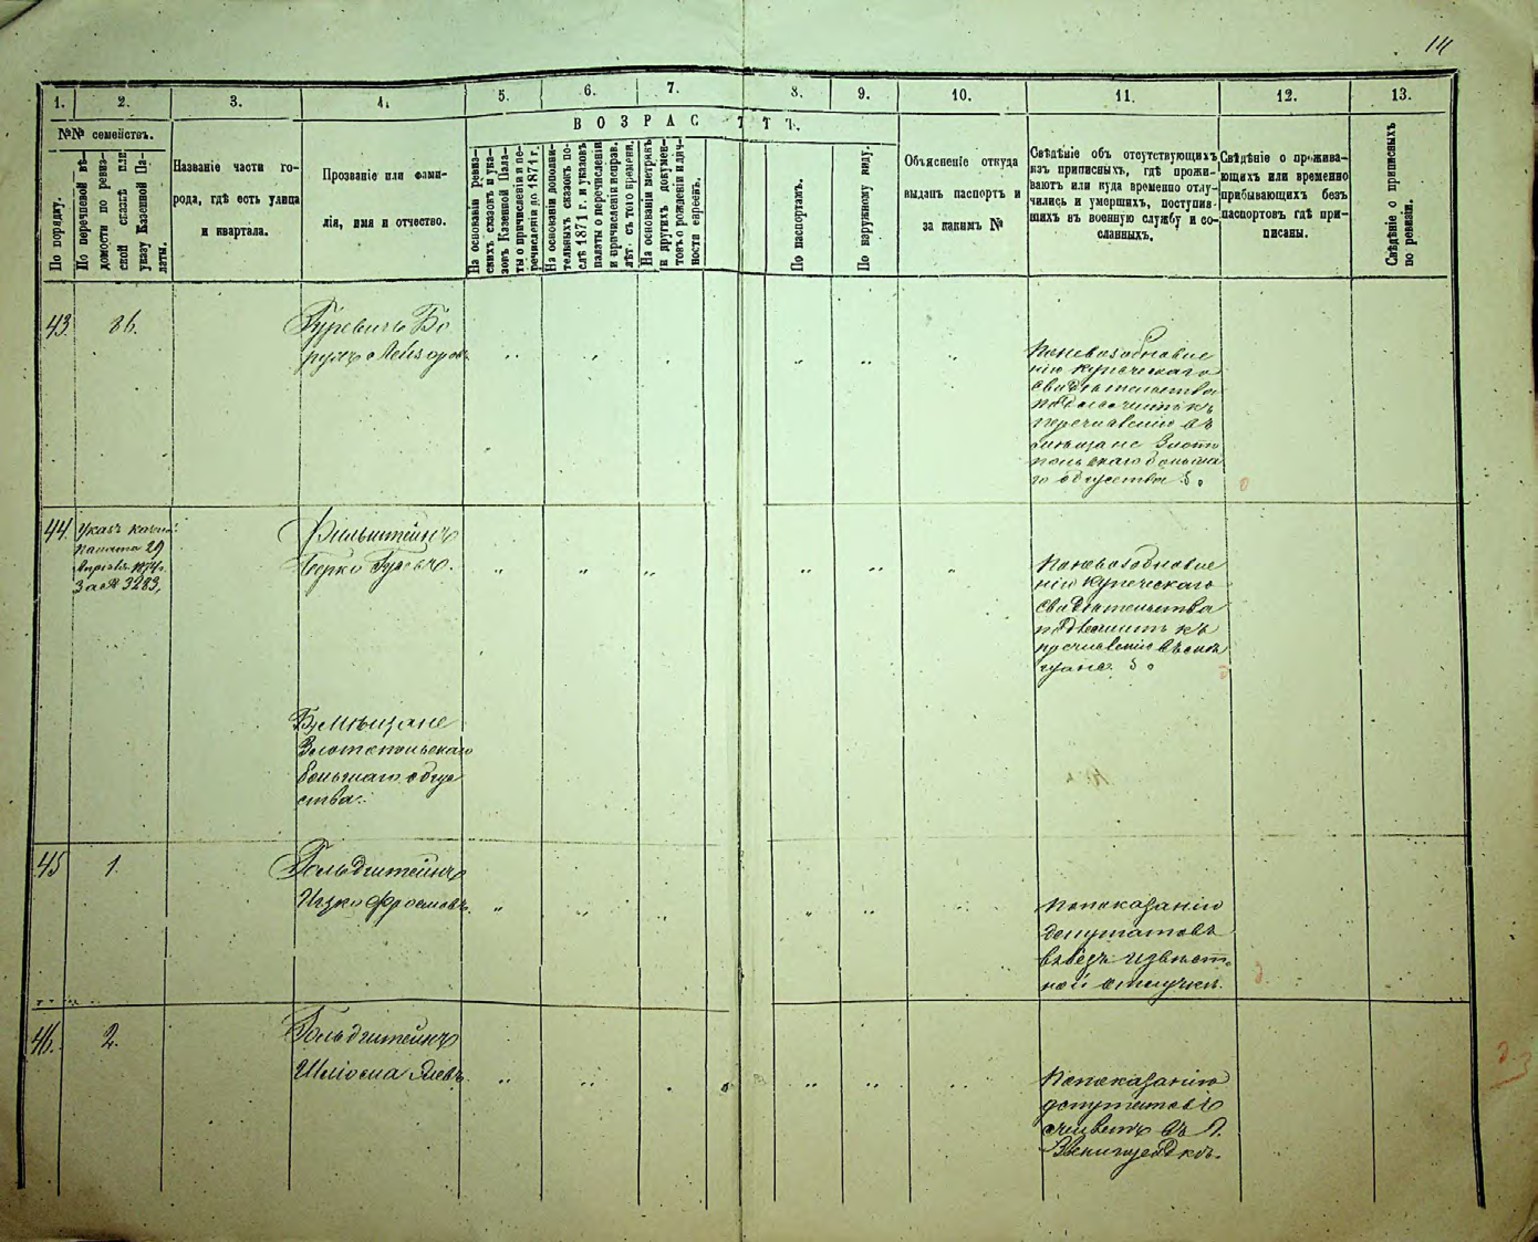 14
1.
2.
3.
4.
5.
6.
7.
8.
9.
10.
11.
12.
13.
№№ семействъ.
ВОЗРАСТЪ.
По порядку.
По перечневой вѣ-
домости по ревиз-
ской сказкѣ или
указу Казенной Па-
латы.
Названіе части го-
рода, гдѣ есть улица
и квартала.
Прозваніе или фами-
лія, имя и отчество.
На основаніи ревиз-
скихъ сказокъ и ука-
зовъ Казенной Пала-
ты о причисленіи и пе-
речисленіи до 1871 г.
На основаніи дополни-
тельныхъ сказокъ по-
слѣ 1871 г. и указовъ
палаты о перечисленіи
и причисленіи исправ.
лѣт. съ того времени.
На основаніи метрикъ
и другихъ докумен-
товъ о рожденіи и лич-
ности евреевъ.
По паспортамъ.
По наружному виду.
Объясненіе откуда
выданъ паспортъ и
за какимъ №
Свѣдѣніе объ отсутствующихъ
изъ приписныхъ, гдѣ прожи-
ваютъ или куда временно отлу-
чились и умершихъ, поступив-
шихъ въ военную службу и со-
сланныхъ.
Свѣдѣніе о прожива-
ющихъ или временно
прибывающихъ безъ
паспортовъ гдѣ при-
писаны.
Свѣдѣніе о приписныхъ
по ревизіи.
43.
86.
Гуревичъ Бо
рухъ Лейзоровъ
Поневозобновле
нію купеческаго
свидѣтельства
подлежитъ къ
перечисленію въ
мѣщане Злато
польскаго больша
го общества
44.
Указъ казен.
Палаты 29
Апрѣля 1874 г.
За № 3283,
Фильштейнъ
Берко
Поневозобновле
нію купеческаго
свидѣтельства
подлежитъ къ
мѣ
щане
Мѣщане
Златопольскаго
большаго обще
ства:
45
1.
Гольдштейнъ
Ицко Фроимовъ.
Попоказанію
депутатовъ
въ безъ извѣст
ной отлучкѣ.
46.
2.
Гольдштейнъ
Шліома
Попоказанію
депутатовъ
живетъ въ г.
Звенигородкѣ.